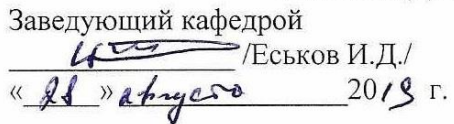 Заведующий кафедрой
/Еськов И.Д./
«28» августа 2019 г.